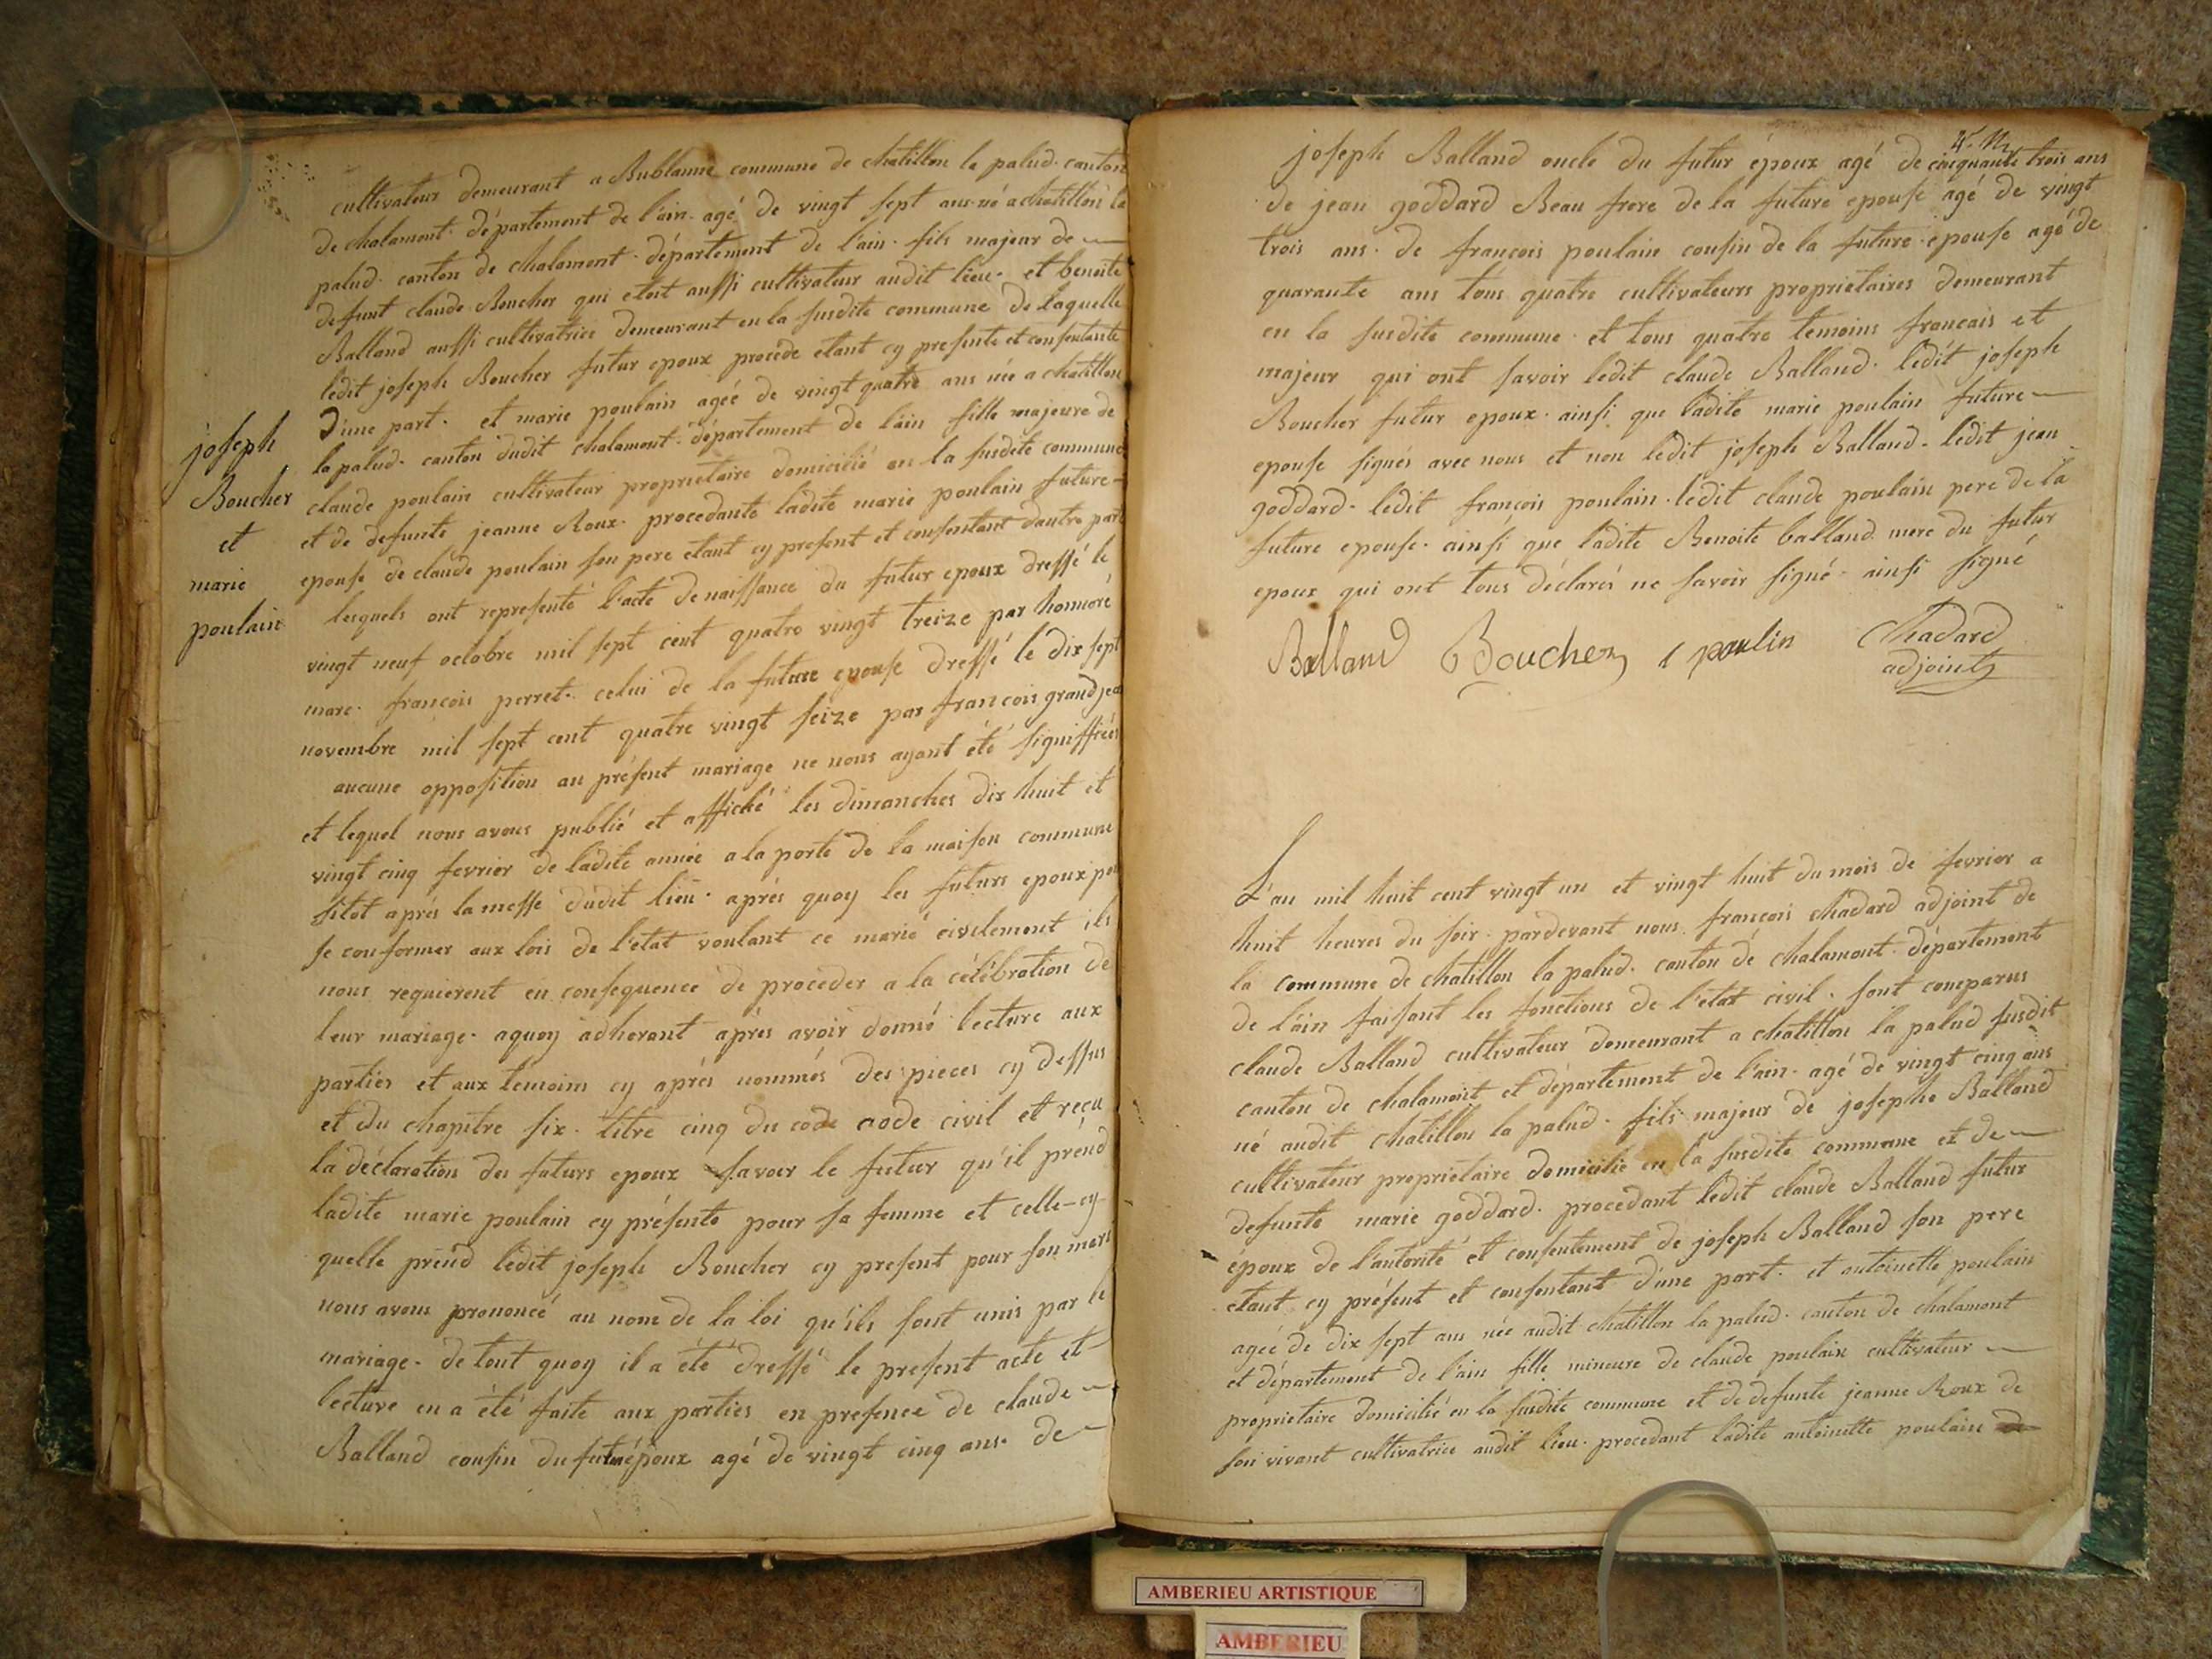 cultivateur demeurant a Bublanne commune de chatillon la palud. canton
de chalamont. département de l'ain. agé de vingt sept ans né a chatillon la
palud. canton de chalamont. département de l'ain. fils majeur de
defunt claude Boucher qui etoit aussi cultivateur audit lieu. et benoite
Balland aussi cultivatrice demeurant en la susdite commune de laquelle
ledit joseph Boucher futur epoux procede etant cy presente et consentante
D'une part. et marie poulain agée de vingt quatre ans née a chatillon
la palud. canton dudit chalamont. département de l'ain fille majeure de
claude poulain cultivateur proprietaire domicilié en la susdite commune
et de defunte jeanne Roux. procedante ladite marie poulain future
epouse de claude poulain son pere etant cy present et consentant dautre part
lesquels ont representé l'acte de naissance du futur epoux dressé le
vingt neuf octobre mil sept cent quatre vingt treize par honnoré
marc. françois perret. celui de la future epouse dressé le dix sept
novembre mil sept cent quatre vingt seize par francois grandjean
aucune opposition au présent mariage ne nous ayant été signiffiées
et lequel nous avons publié et affiché les dimanches dix huit et
vingt cinq fevrier de ladite année a la porte de la maison commune
sitot aprés la messe dudit lieu. aprés quoy les futurs epoux pour
se conformer aux lois de l'etat voulant ce marié civilement ils
nous requierent en consequence de proceder a la célébration de
leur mariage. aquoy adherant aprés avoir donné lecture aux
parties et aux temoins cy aprés nommés des pieces cy dessus
et du chapitre six. titre cinq du code code civil et reçu
la déclaration des futurs epoux savoir le futur qu'il prend
ladite marie poulain cy présente pour sa femme et celle-cy
quelle prend ledit joseph Boucher cy present pour son mari
nous avons prononcé au nom de la loi qu'ils sont unis par le
mariage. de tout quoy il a été dressé le present acte et
lecture en a été faite aux parties en presence de claude
Balland cousin du futur époux agé de vingt cinq ans. de
joseph
Boucher
et
marie
poulain
joseph Balland oncle du futur époux agé de cinquante trois ans
de jean goddard Beau frere de la future epouse agé de vingt
trois ans. de françois poulain cousin de la future epouse agé de
quarante ans tous quatre cultivateurs proprietaires demeurant
en la susdite commune. et tous quatre temoins francais et
majeur qui ont savoir ledit claude Balland. ledit joseph
Boucher futur epoux. ainsi que ladite marie poulain future
epouse signés avec nous et non ledit joseph Balland. ledit jean
goddard. ledit françois poulain. ledit claude poulain pere de la
future epouse. ainsi que ladite Benoite balland mere du futur
epoux qui ont tous déclarés ne savoir signé. ainsi signé
Balland Boucher poulin Chadard
adjoint
L'an mil huit cent vingt un et vingt huit du mois de fevrier a
huit heures du soir. pardevant nous. françois chadard adjoint de
la commune de chatillon la palud. canton de chalamont. département
de l'ain faisant les fonctions de l'état civil. sont comparus
claude Balland cultivateur demeurant a chatillon la palud susdit
canton de chalamont et département de l'ain. agé de vingt cinq ans
né audit chatillon la palud. fils majeur de josephe Balland
cultivateur proprietaire domicilié en la susdite commune et de
defunte marie goddard. procedant ledit claude Balland futur
époux de l'autorité et consentement de joseph Balland son pere
etant cy présent et consentant d'une part. et antoinette poulain
agée de dix sept ans née audit chatillon la palud. canton de chalamont
et département de l'ain fille mineure de claude poulain cultivateur
proprietaire domicilié en la susdite commune et de defunte jeanne Roux de
son vivant cultivatrice audit lieu. procedant ladite antoinette poulain
AMBERIEU ARTISTIQUE
AMBERIEU